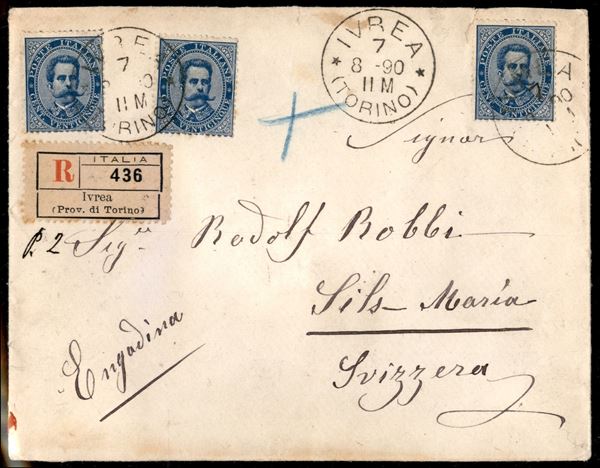 POSTE ITALIANE
CENT. VENTICINQUE
POSTE ITALIANE
CENT. VENTICINQUE
POSTE ITALIANE
CENT. VENTICINQUE
IVREA
7
11 M
IVREA
7
8 -90
11 M
(TORINO)
R
ITALIA
436
Ivrea
(Prov. di Torino)
Signor
P. 2 Sigr Rodolf Robbi
Sils-Maria
Engadina
Svizzera